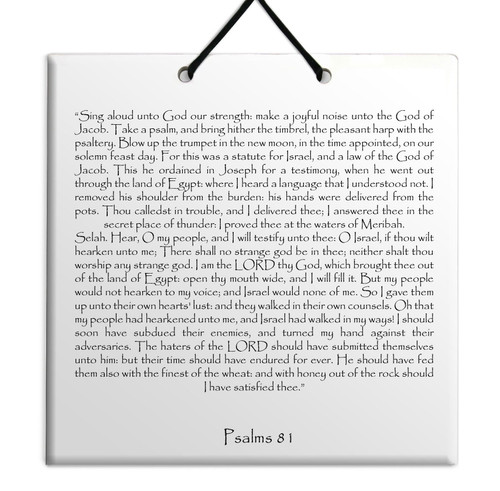 “Sing aloud unto God our strength: make a joyful noise unto the God of
Jacob. Take a psalm, and bring hither the timbrel, the pleasant harp with the
psaltery. Blow up the trumpet in the new moon, in the time appointed, on our
solemn feast day. For this was a statute for Israel, and a law of the God of
Jacob. This he ordained in Joseph for a testimony, when he went out
through the land of Egypt: where I heard a language that I understood not. I
removed his shoulder from the burden: his hands were delivered from the
pots. Thou calledst in trouble, and I delivered thee; I answered thee in the
secret place of thunder: I proved thee at the waters of Meribah.
Selah. Hear, O my people, and I will testify unto thee: O Israel, if thou wilt
hearken unto me; There shall no strange god be in thee; neither shalt thou
worship any strange god. I am the LORD thy God, which brought thee out
of the land of Egypt: open thy mouth wide, and I will fill it. But my people
would not hearken to my voice; and Israel would none of me. So I gave them
up unto their own hearts' lust: and they walked in their own counsels. Oh that
my people had hearkened unto me, and Israel had walked in my ways! I should
soon have subdued their enemies, and turned my hand against their
adversaries. The haters of the LORD should have submitted themselves
unto him: but their time should have endured for ever. He should have fed
them also with the finest of the wheat: and with honey out of the rock should
I have satisfied thee.”
Psalms 81